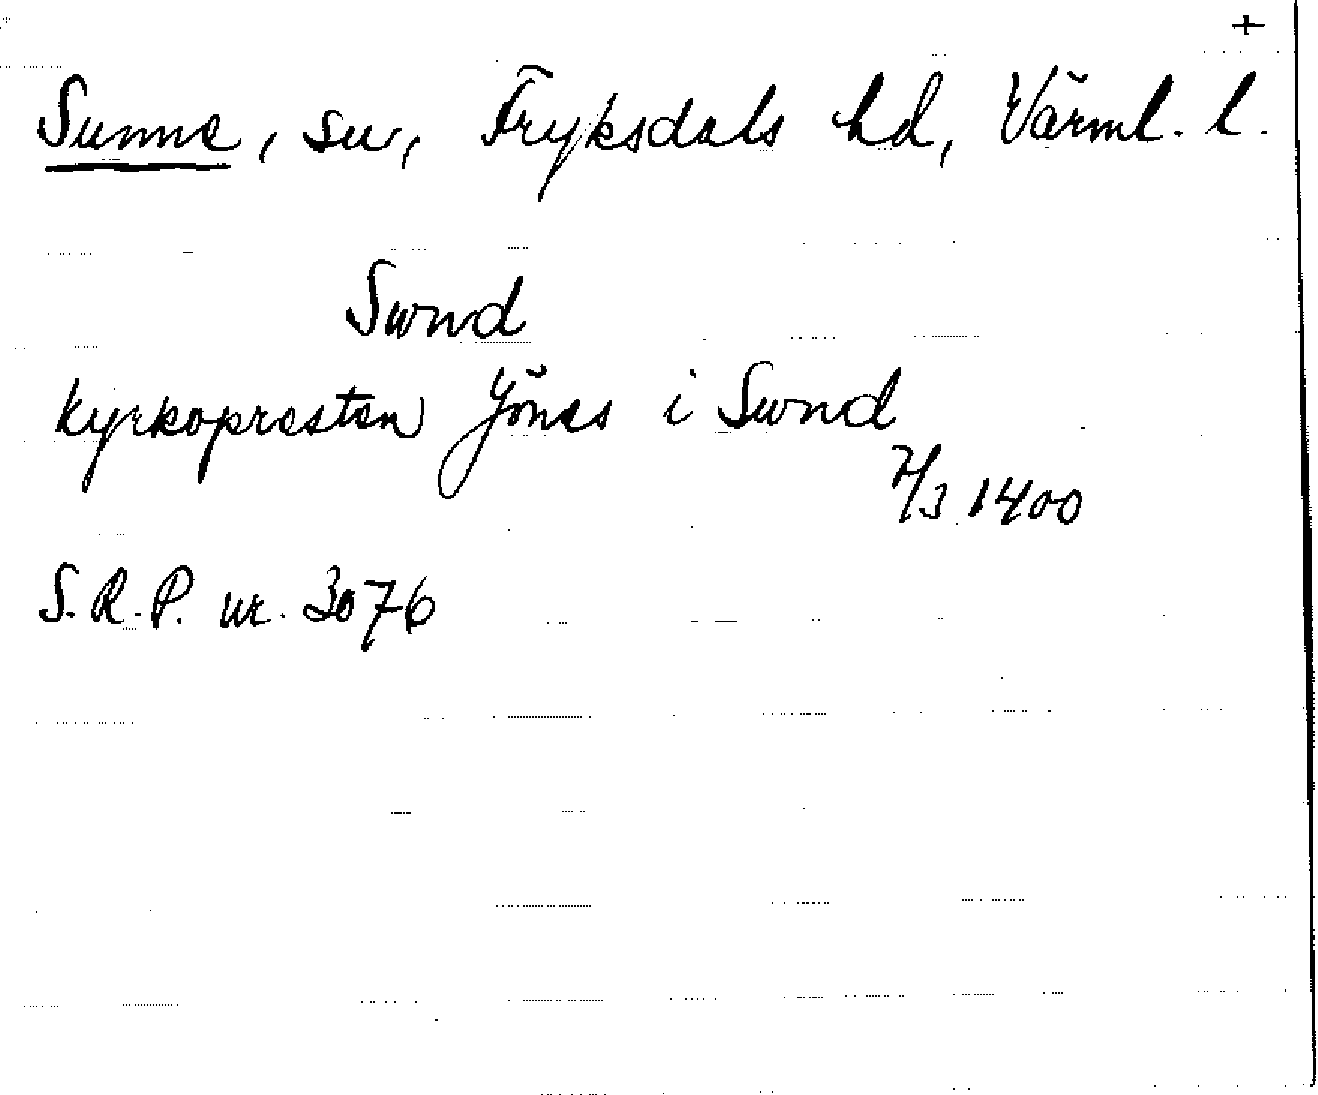 +
Sunne, sn, Fryksdals hd, Värml. l.
Swnd
kyrkopresten Jönes i Swnd
7/3 1400
S.R.P. nr. 3076